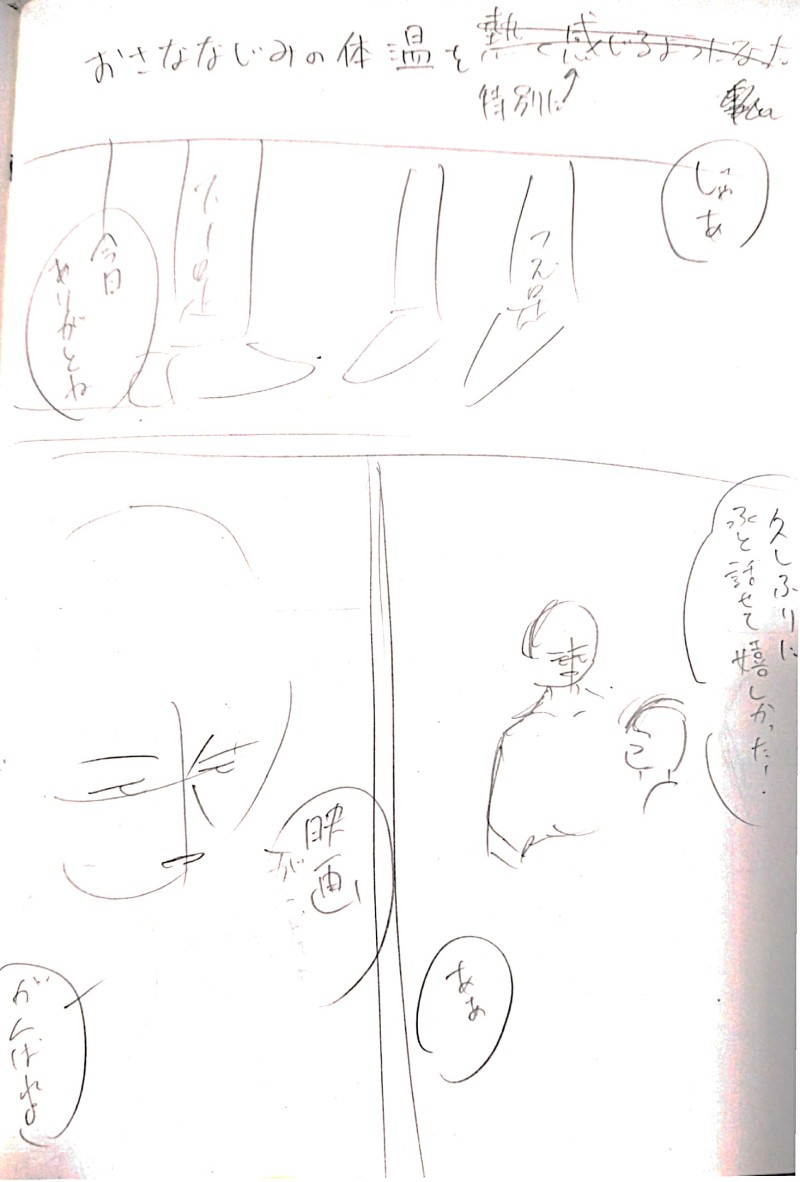 おさななじみの体温を熱く感じるようになった
特別に
じゃあ
今日
ありがとね
久しぶりに
ふと話せて嬉しかった!
ああ
映画
がんばれよ